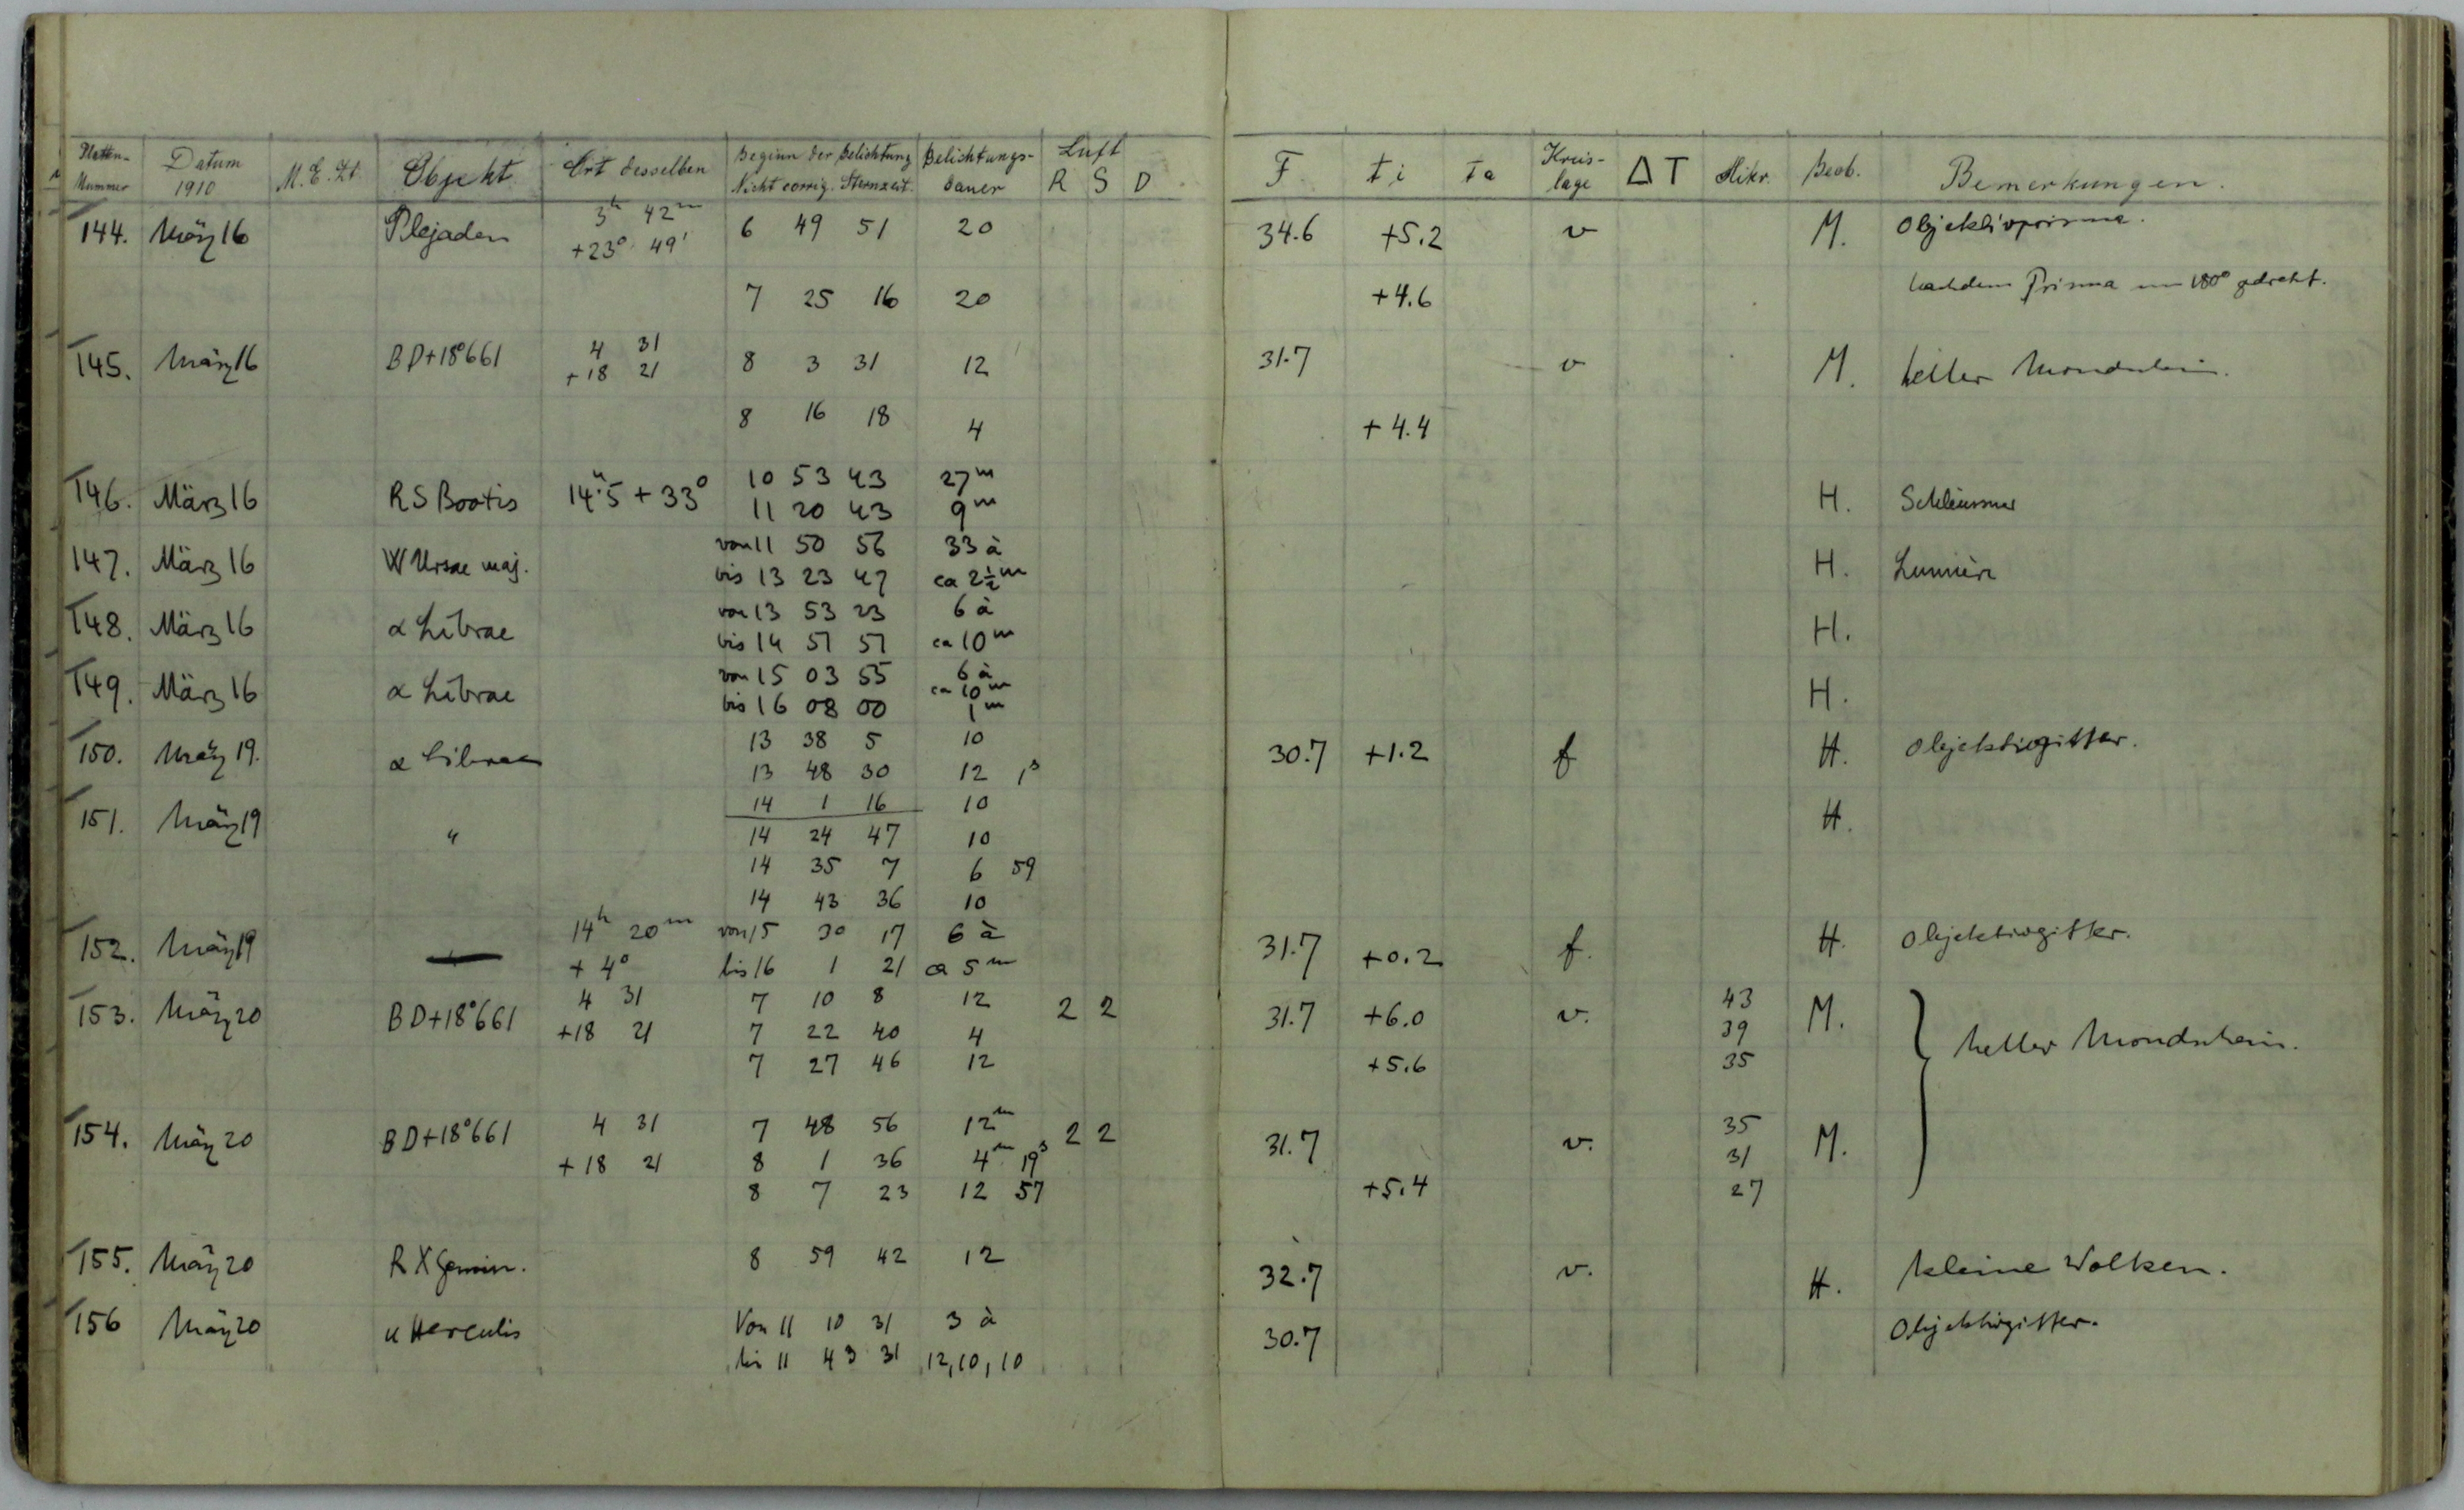 Platten- Nummer Datum 1910 M.E.Zt. Objekt Ort desselben Beginn der Belichtung Nicht corrig. Sternzeit. Belichtungs- dauer Luft R S D F ti ta Kreis- lage ΔT Mikr. Beob. Bemerkungen.
144. März 16 Plejaden 3h 42m 6 49 51 20 34.6 +5.2 v M. Objektivprisma.
+23° 49'
7 25 16 20 +4.6 Nachdem Prisma um 180° gedreht.
145. März 16 BD+18°661 4 31 8 3 31 12 31.7 v M. heller Mondschein.
+18 21
8 16 18 4 +4.4
146. März 16 RS Bootis 14h.5 +33° 10 53 43 27m H. Schleussner
11 20 43 9m
147. März 16 W Ursae maj. von 11 50 56 33 à H. Lumière
bis 13 23 47 ca 2½m
148. März 16 α Librae von 13 53 23 6 à H.
bis 14 51 51 ca 10m
149. März 16 α Librae von 15 03 55 6 à H.
ca 10m
bis 16 08 00 1m
150. März 19. α Librae 13 38 5 10 30.7 +1.2 f H. Objektivgitter.
13 48 30 12 1s
14 1 16 10
151. März 19 " 14 24 47 10 H.
14 35 7 6 59
14 43 36 10
152. März 19 — 14h 20m von 15 30 17 6 à 31.7 +0.2 f. H. Objektivgitter.
+4° bis 16 1 21 ca 5m
153. März 20 BD+18°661 4 31 7 10 8 12 2 2 31.7 +6.0 v. 43 M. heller Mondschein.
+18 21 7 22 40 4 39
7 27 46 12 +5.6 35
154. März 20 BD+18°661 4 31 7 48 56 12m 2 2 31.7 v. 35 M.
+18 21 8 1 36 4m 19s 31
8 7 23 12 57 +5.4 27
155. März 20 RX Gemin. 8 59 42 12 32.7 v. H. kleine Wolken.
156 März 20 u Herculis Von 11 10 31 3 à 30.7 Objektivgitter.
bis 11 43 31 12, 10, 10